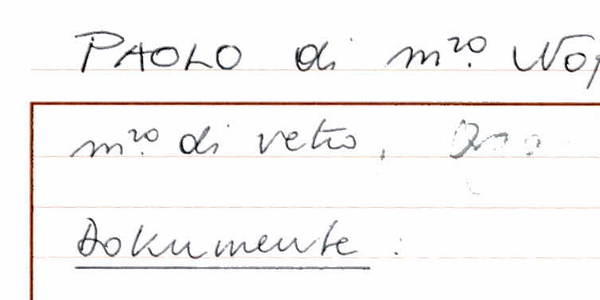 PAOLO di m.ʳᵒ
m.ʳᵒ di vetro,
Dokumente :